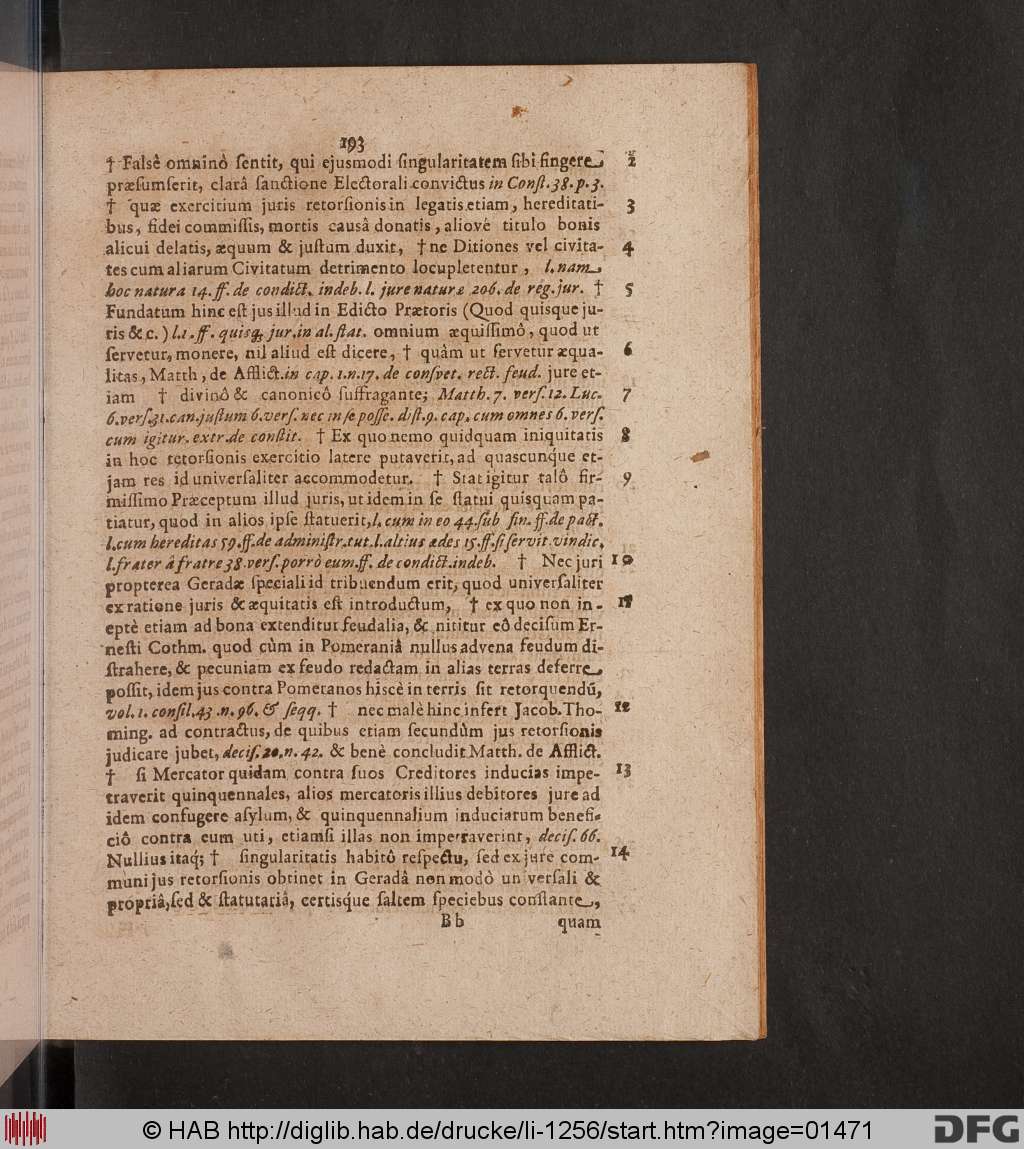 193
† Falsè omninò sentit, qui ejusmodi singularitatem sibi fingere, 2
præsumserit, clarâ sanctione Electorali convictus in Const. 38. p. 3.
† quæ exercitium juris retorsionis in legatis etiam, hereditati- 3
bus, fidei commissis, mortis causâ donatis, aliovè titulo bonis
alicui delatis, æquum & justum duxit, † ne Ditiones vel civita- 4
tes cum aliarum Civitatum detrimento locupletentur, l. nam,
hoc natura 14. ff. de condict. indeb. l. jure naturæ 206. de reg. jur. † 5
Fundatum hinc est jus illud in Edicto Prætoris (Quod quisque ju-
ris & c.) l. 1. ff. quisq; jur. in al. stat. omnium æquissimô, quod ut
servetur, monere, nil aliud est dicere, † quàm ut servetur æqua- 6
litas, Matth, de Afflict. in cap. 1. n. 17. de consvet. rect. feud. jure et-
iam † divinô & canonicô suffragante; Matth. 7. vers. 12. Luc. 7
6. vers. 31. can. justum 6. vers. nec in se posse. dist. 9. cap. cum omnes 6. vers.
cum igitur. extr. de constit. † Ex quo nemo quidquam iniquitatis 8
in hoc retorsionis exercitio latere putaverit, ad quascunq́ue et-
jam res id universaliter accommodetur. † Stat igitur talô fir- 9
missimo Præceptum illud juris, ut idem in se statui quisquam pa-
tiatur, quod in alios ipse statuerit, l. cum in eo 44. sub fin. ff. de pact.
l. cum hereditas 59. ff. de administr. tut. l. altius ædes 15. ff. si servit. vindic.
l. frater à fratre 38. vers. porrò eum. ff. de condict. indeb. † Nec juri 10
propterea Geradæ speciali id tribuendum erit, quod universaliter
ex ratione juris & æquitatis est introductum, † ex quo non in- 11
eptè etiam ad bona extenditur feudalia, & nititur eô decisum Er-
nesti Cothm. quod cùm in Pomeraniâ nullus advena feudum di-
strahere, & pecuniam ex feudo redactam in alias terras deferre,
possit, idem jus contra Pomeranos hiscè in terris sit retorquendū,
vol. 1. consil. 43. n. 96. & seqq. † nec malè hinc infert Jacob. Tho- 12
ming. ad contractus, de quibus etiam secundùm jus retorsionis
judicare jubet, decis. 20. n. 42. & benè concludit Matth. de Afflict.
† si Mercator quidam contra suos Creditores inducias impe- 13
traverit quinquennales, alios mercatoris illius debitores jure ad
idem confugere asylum, & quinquennalium induciarum benefi-
ciô contra eum uti, etiamsi illas non impetraverint, decis. 66.
Nullius itaq́; † singularitatis habitô respectu, sed ex jure com- 14
muni jus retorsionis obtinet in Geradâ non modò universali &
propriâ, sed & statutariâ, certisq́ue saltem speciebus constante,
B b quam
© HAB http://diglib.hab.de/drucke/li-1256/start.htm?image=01471
DFG